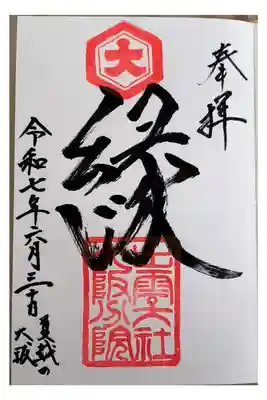 奉拝
大
縁
出雲大社
阪分院
令和七年六月三十日
夏越の
大祓